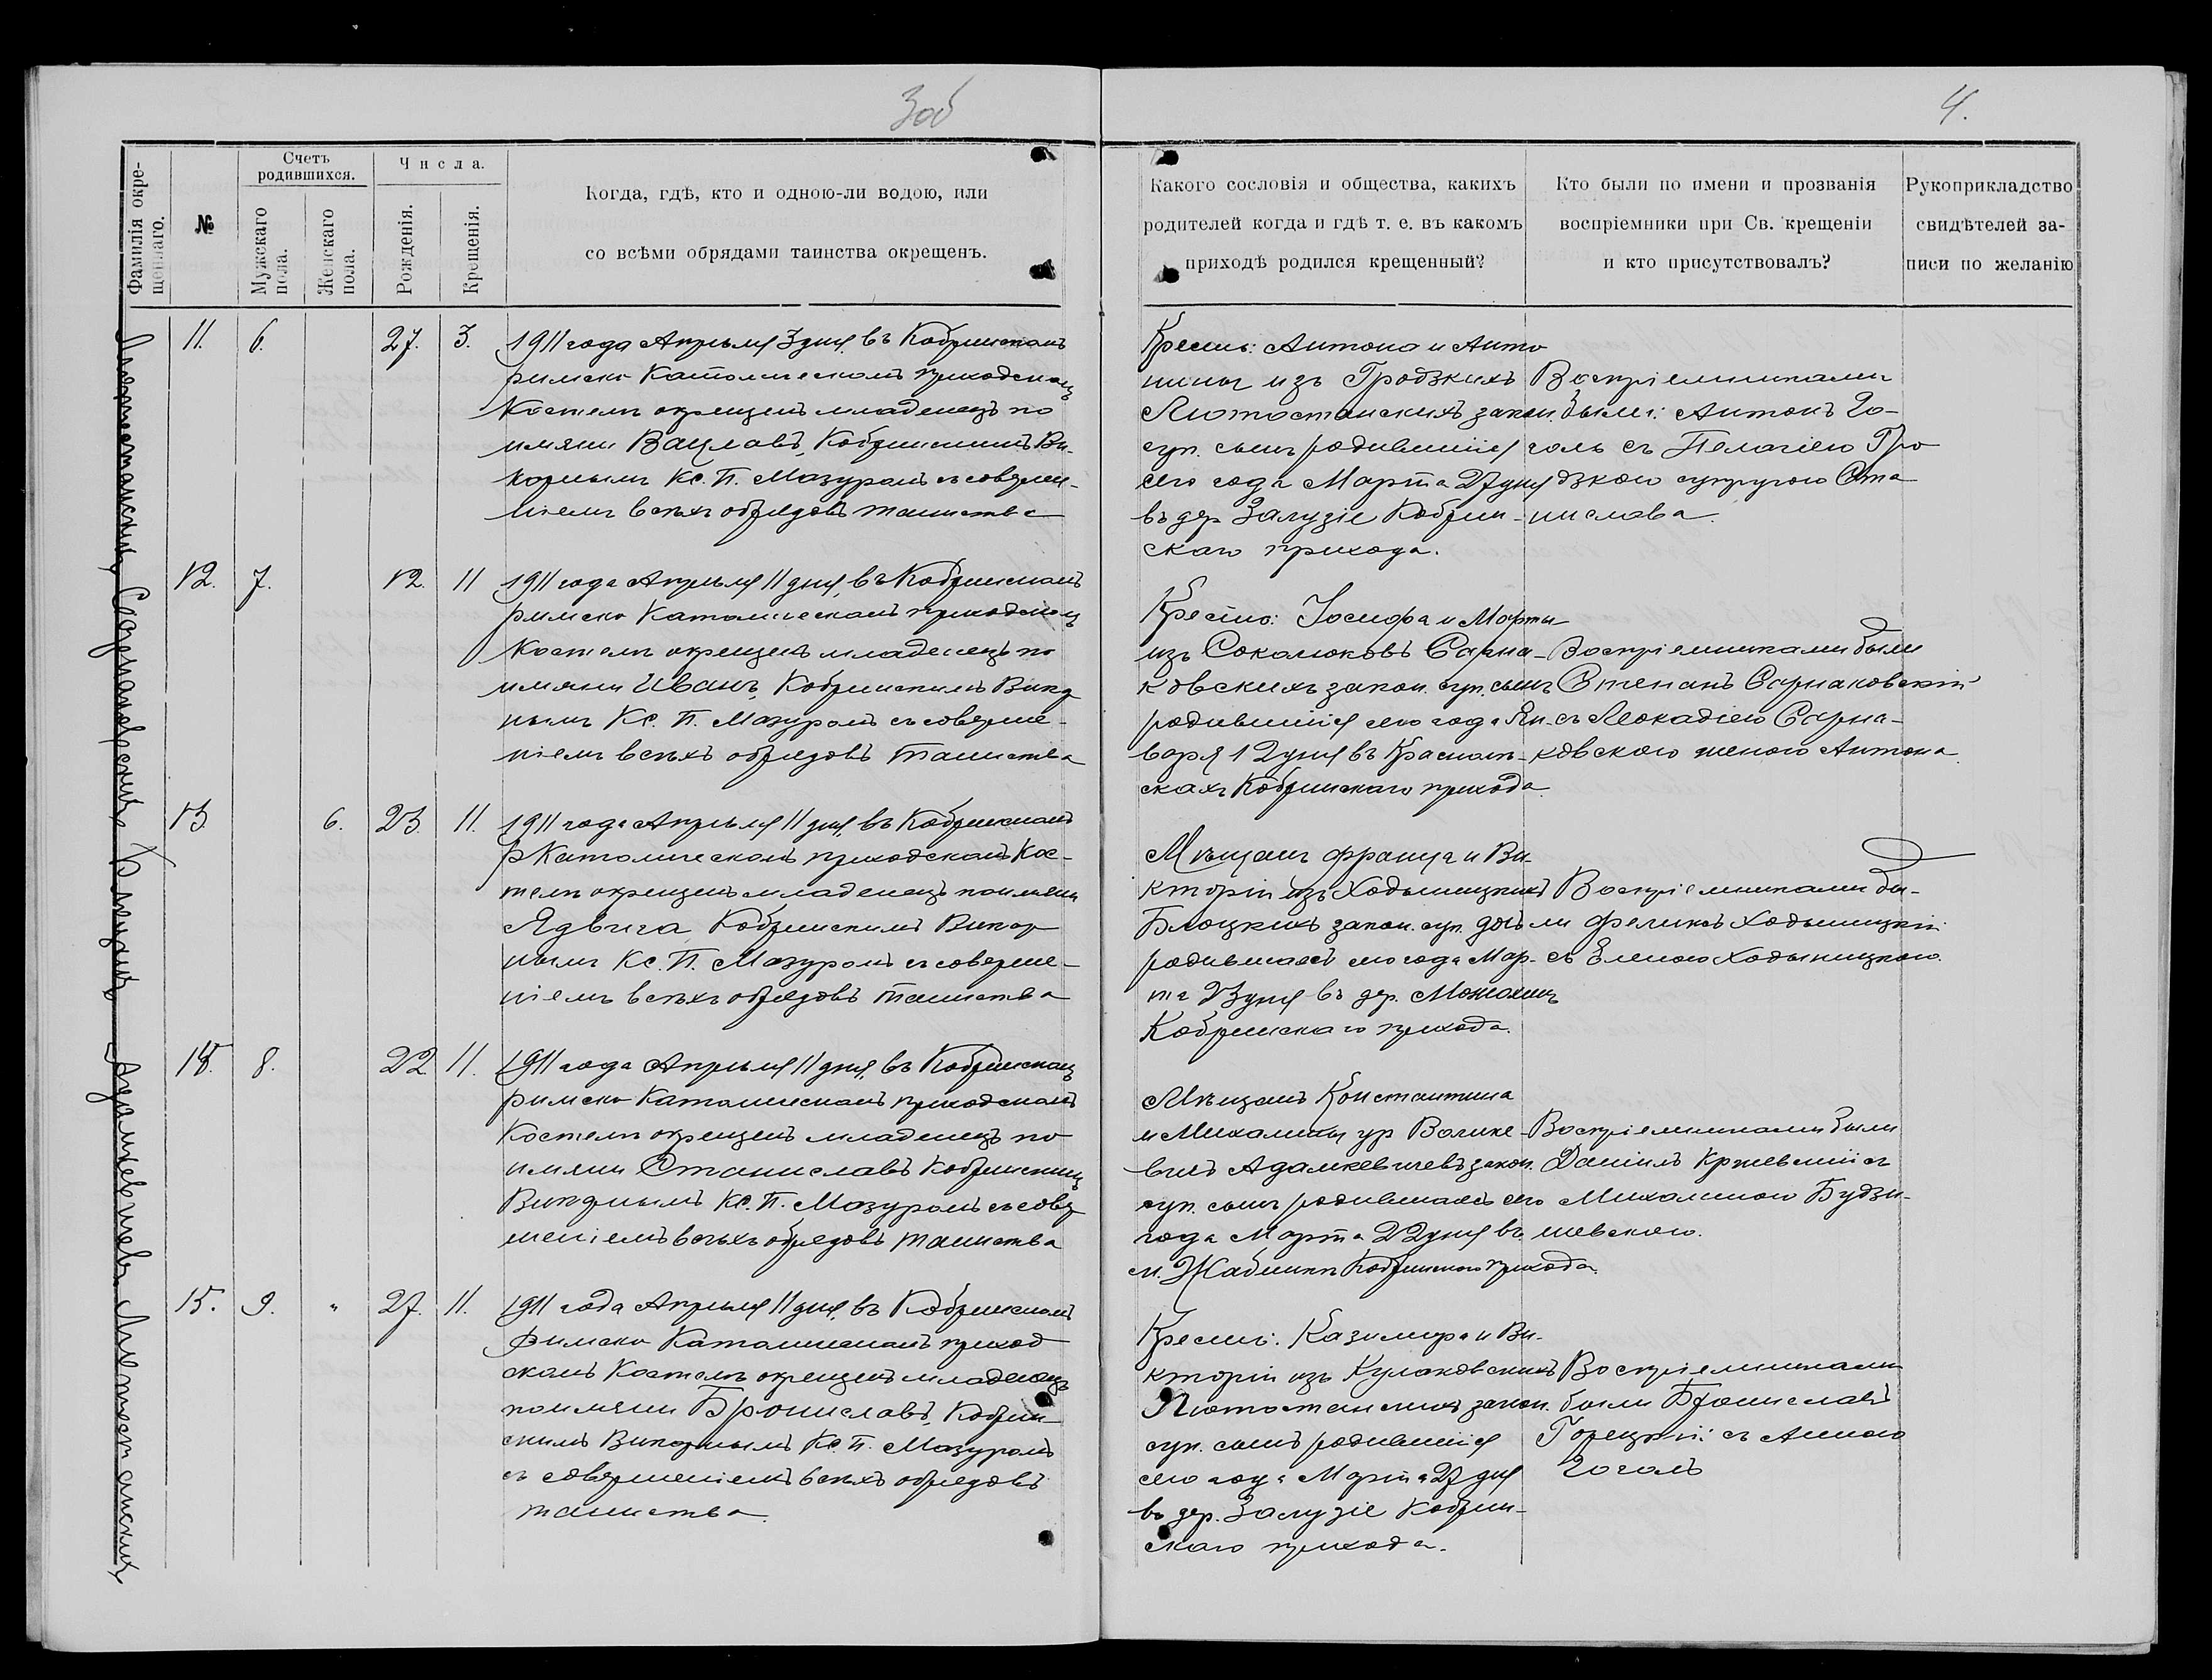 3об
4.
Фамилія окре-
щеннаго.
№
Счетъ
родившихся.
Мужскаго
пола.
Женскаго
пола.
Числа.
Рожденія.
Крещенія.
Когда, гдѣ, кто и одною-ли водою, или
со всѣми обрядами таинства окрещенъ.
Какого сословія и общества, какихъ
родителей когда и гдѣ т. е. въ какомъ
приходѣ родился крещенный?
Кто были по имени и прозванія
воспріемники при Св. крещеніи
и кто присутствовалъ?
Рукоприкладство
свидѣтелей за-
писи по желанію
11. 6. 27. 3.
1911 года Апрѣля 3 дня, въ Кобринскомъ
римско Католическомъ приходскомъ
Костелѣ окрещенъ младенецъ по
имяни Вацлавъ, Кобринскимъ Ви-
карнымъ Кс. П. Мазуромъ съ соверше-
ніемъ всѣхъ обрядовъ таинства
Крестьн: Антона и Анто
нины изъ Гродзкихъ
Лютостанскихъ закон.
суп. сынъ родившійся
сего года Марта 27 дня
въ дер Залузіе Кобрин-
скаго прихода.
Воспріемниками
были: Антонъ Го-
голь съ Пелагіею Гро
дзкою супругою Ста
нислава.
12. 7. 12. 11
1911 года Апрѣля 11 дня, въ Кобринскомъ
римско Католическомъ приходском
Костелѣ окрещенъ младенецъ по
имяни Иванъ, Кобринскимъ Викар
нымъ Кс. П. Мазуромъ съ соверше-
ніемъ всѣхъ обрядовъ таинства
Крестьн: Іосифа и Марты
изъ Соколюковъ Сарна-
ковскихъ закон. суп. сынъ
родившійся сего года Ян-
варя 12 дня въ
Кобринскаго прихода
Воспріемниками были
Степанъ Сарнаковскій
съ Леокадіею Сарна-
ковскою женою Антона
13. 6. 23. 11.
1911 года Апрѣля 11 дня, въ Кобринскомъ
р Католическомъ приходскомъ Кос-
телѣ окрещенъ младенецъ по имяни
Ядвига, Кобринскимъ Викар
нымъ Кс. П. Мазуромъ съ соверше-
ніемъ всѣхъ обрядовъ таинства
Мѣщанъ Франца и Ви-
кторіи изъ Ходыницкихъ
закон. суп. дочь
родившаясь сего года Мар-
та 23 дня въ дер.
Кобринскаго прихода.
Воспріемниками бы-
ли Феликсъ Ходыницкій
съ Еленою Ходыницкою.
14. 8. 22 11.
1911 года Апрѣля 11 дня, въ Кобринском
римско Католическомъ приходскомъ
Костелѣ окрещенъ младенецъ по
имяни Станиславъ Кобринским
Викарнымъ Кс. П. Мазуромъ съ совер
шеніемъ всѣхъ обрядовъ таинства
Мѣщанъ Константина
и Михалины ур
Адамкевичевъ закон.
суп. сынъ родившаясь сего
года Марта 22 дня въ
м. Жабинкѣ Кобринскаго прихода.
Воспріемниками были
Даніилъ Кржевскій съ
Михалиною Будзи-
шевскою.
15. 9. " 27. 11.
1911 года Апрѣля 11 дня, въ Кобринскомъ
Римско Католическомъ приход
скомъ Костелѣ окрещенъ младенецъ
по имяни Брониславъ, Кобрин-
скимъ Викарнымъ Кс. П. Мазуромъ
съ совершеніемъ всѣхъ обрядовъ
таинства.
Крестьн: Казимира и Ви-
кторіи изъ Кулаковскихъ
Лютостанскихъ закон.
суп. сынъ родившійся
сего года Марта 27 дня
въ дер. Залузіе Кобрин-
скаго прихода.
Воспріемниками
были Брониславъ
Горецкій съ Анною
Гоголь